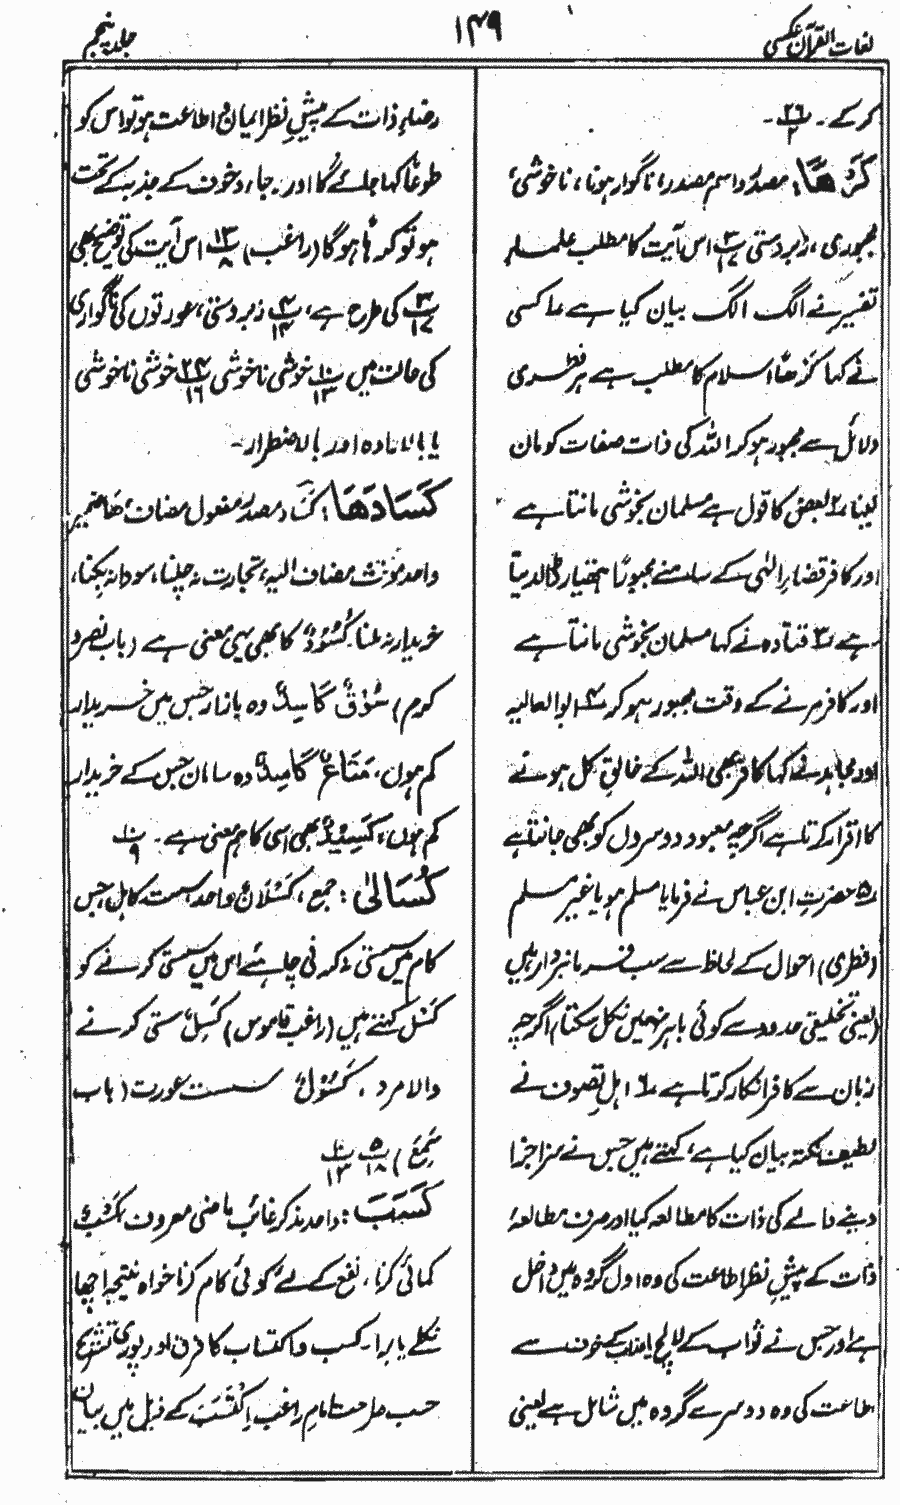 لغات القرآن عکسی
۱۴۹
جلد پنجم
کر کے ۔ ۲۶/۲ ۔
کَرْھًا: مصدر واسم مصدر، ناگوار ہونا، ناخوشی،
مجبوری، زبردستی ۳/۱۷ اس آیت کا مطلب علماء
تفسیر نے الگ الگ بیان کیا ہے ۱ کسی
نے کہا کَرْھًا اسلام کا مطلب ہے ہر فطری
دلائل سے مجبور ہو کر اللہ کی ذات صفات کو مان
لینا، ۲ بعض کا قول ہے مسلمان بخوشی مانتا ہے
اور کافر قضاء الٰہی کے سامنے مجبوراً ہتھیار ڈالدیتا
ہے ۳ قتادہ نے کہا مسلمان بخوشی مانتا ہے
اور کافر مرنے کے وقت مجبور ہو کر ۴ ابوالعالیہ
اور مجاہد نے کہا کافر بھی اللہ کے خالقِ کل ہونے
کا اقرار کرتا ہے اگرچہ معبود دوسروں کو بھی جانتا ہے
۵ حضرت ابن عباس نے فرمایا مسلم ہو یا غیر مسلم
(فطری) احوال کے لحاظ سے سب فرمانبردار ہیں
(یعنی تخلیقی حدود سے کوئی باہر نہیں نکل سکتا) اگرچہ
زبان سے کافر انکار کرتا ہے ۶ اہل تصوف نے
لطیف نکتہ بیان کیا ہے، کہتے ہیں جس نے سزا جزا
دینے والے کی ذات کا مطالعہ کیا اور صرف مطالعۂ
ذات کے پیشِ نظر اطاعت کی وہ اول گروہ میں داخل
ہے اور جس نے ثواب کے لالچ یا عذاب کے خوف سے
اطاعت کی وہ دوسرے گروہ میں شامل ہے یعنی
رضاء ذات کے پیشِ نظر ایمان و اطاعت ہو تو اس کو
طوعًا کہا جائے گا اور رجاء و خوف کے جذبہ کے تحت
ہو تو کرھًا ہوگا (راغب) ۱۳/۸ اس آیت کی توضیح بھی
۳/۱۷ کی طرح ہے، ۴/۱۴ زبردستی، عورتوں کی ناگواری
کی حالت میں ۱۰/۱۳ خوشی ناخوشی ۲۴/۱۶ خوشی ناخوشی
یا بالارادہ اور بالاضطرار۔
کَسَادَھَا: کَسَاد مصدر مفعول مضاف، ھَا ضمیر
واحد مؤنث مضاف الیہ، تجارت نہ چلنا، سودا نہ بِکنا،
خریدار نہ ملنا۔ کُسُوْدٌ کا بھی یہی معنی ہے (باب نصر و
کرم) سُوْقٌ کَاسِدٌ وہ بازار جس میں خریدار
کم ہوں، مَتَاعٌ کَاسِدٌ وہ سامان جس کے خریدار
کم ہوں، کَسِیْدٌ بھی اسی کا ہم معنی ہے۔ ۱۰/۹
کُسَالیٰ: جمع، کَسْلَانُ واحد۔ سست کاہل، جس
کام میں سستی نہ کرنی چاہئے اس میں سستی کرنے کو
کَسَل کہتے ہیں (راغب قاموس) کَسِلٌ، سستی کرنے
والا مرد، کَسُوْلٌ سست عورت (باب
سَمِعَ) ۵/۱۸ ۱۰/۱۳
کَسَبَ: واحد مذکر غائب ماضی معروف کَسْبٌ
کمائی کرنا، نفع کے لئے کوئی کام کرنا خواہ نتیجہ اچھا
نکلے یا برا۔ کسب و اکتساب کا فرق اور پوری تشریح
حسب صراحت امام راغب اِکْتَسَبَ کے ذیل میں بیان